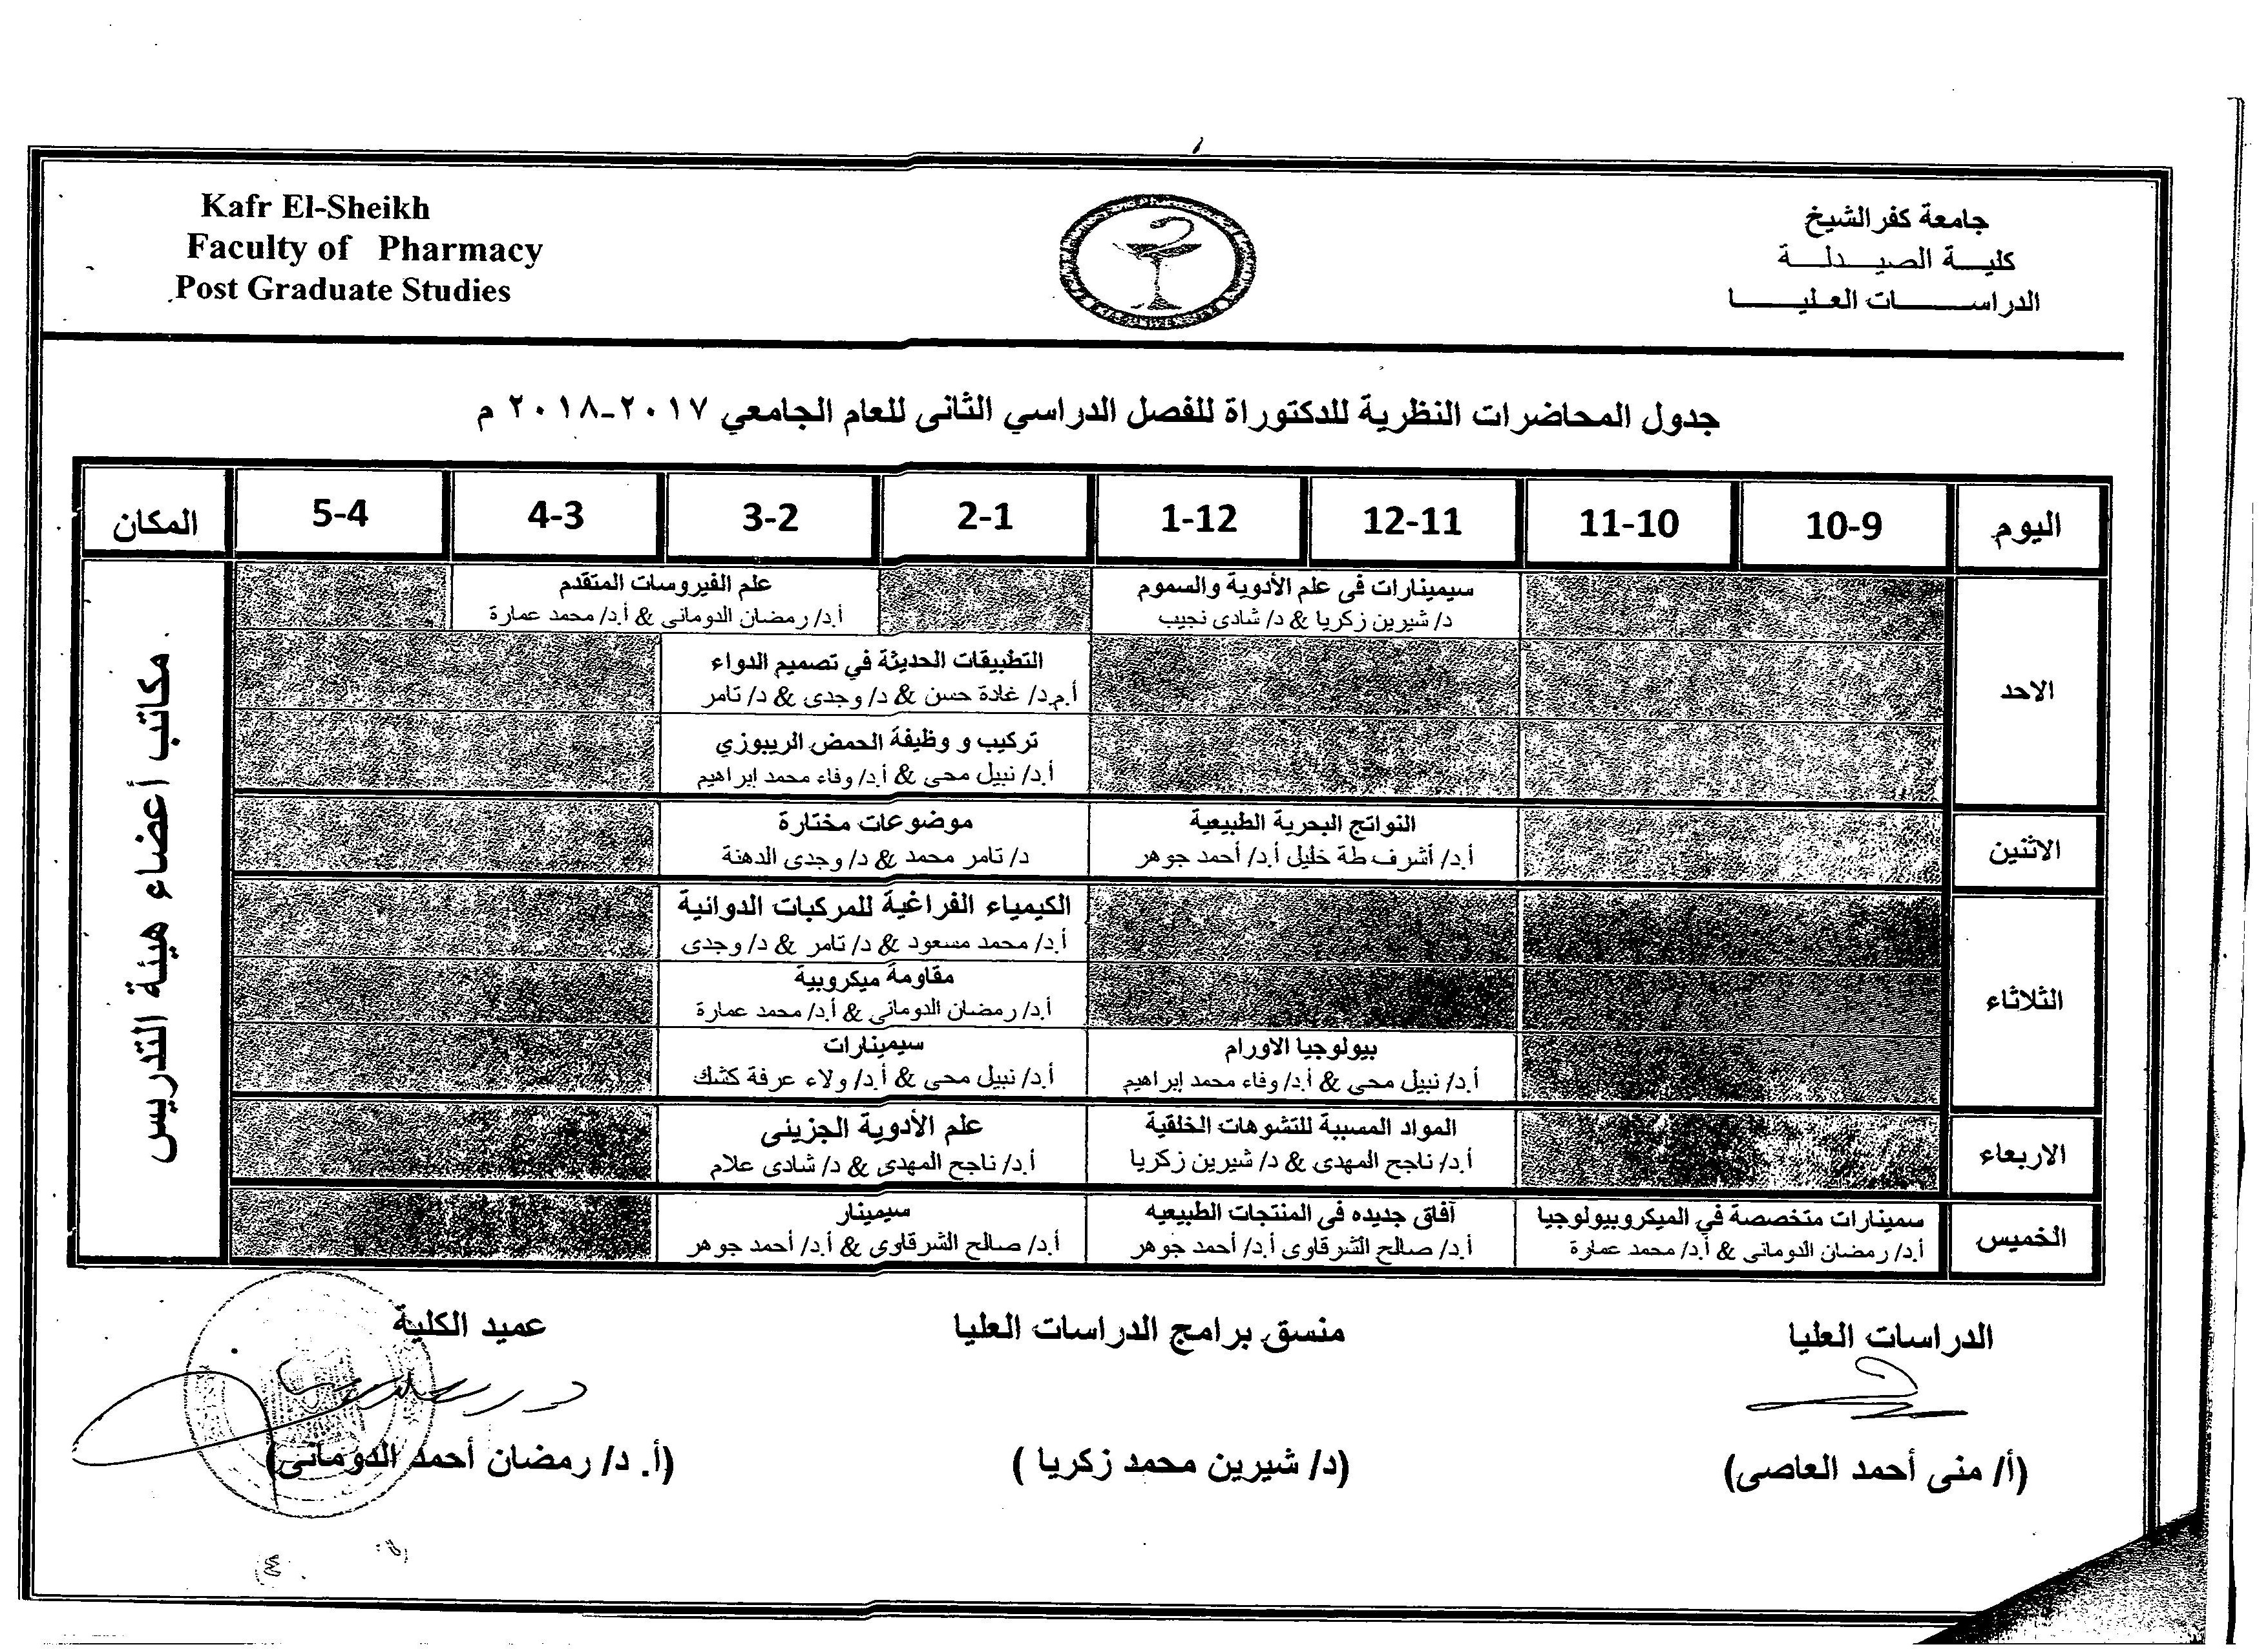 Kafr El-Sheikh
Faculty of Pharmacy
Post Graduate Studies
جامعة كفر الشيخ
كلية الصيدلة
الدراسات العليا
جدول المحاضرات النظرية للدكتوراة للفصل الدراسي الثانى للعام الجامعي ٢٠١٧-٢٠١٨ م
اليوم 10-9 11-10 12-11 1-12 2-1 3-2 4-3 5-4 المكان
الاحد
سيمينارات فى علم الأدوية والسموم
د/ شيرين زكريا & د/ شادى نجيب
علم الفيروسات المتقدم
أ.د/ رمضان الدومانى & أ.د/ محمد عمارة
التطبيقات الحديثة في تصميم الدواء
أ.م.د/ غادة حسن & د/ وجدى & د/ تامر
تركيب و وظيفة الحمض الريبوزي
أ.د/ نبيل محى & أ.د/ وفاء محمد ابراهيم
الاثنين
النواتج البحرية الطبيعية
أ.د/ أشرف طة خليل أ.د/ أحمد جوهر
موضوعات مختارة
د/ تامر محمد & د/ وجدى الدهنة
الثلاثاء
الكيمياء الفراغية للمركبات الدوائية
أ.د/ محمد مسعود & د/ تامر & د/ وجدى
مقاومة ميكروبية
أ.د/ رمضان الدومانى & أ.د/ محمد عمارة
بيولوجيا الاورام
أ.د/ نبيل محى & أ.د/ وفاء محمد إبراهيم
سيمينارات
أ.د/ نبيل محى & أ.د/ ولاء عرفة كشك
الاربعاء
المواد المسببة للتشوهات الخلقية
أ.د/ ناجح المهدى & د/ شيرين زكريا
علم الأدوية الجزيئى
أ.د/ ناجح المهدى & د/ شادى علام
الخميس
سمينارات متخصصة في الميكروبيولوجيا
أ.د/ رمضان الدومانى & أ.د/ محمد عمارة
آفاق جديده فى المنتجات الطبيعيه
أ.د/ صالح الشرقاوى أ.د/ أحمد جوهر
سيمينار
أ.د/ صالح الشرقاوى & أ.د/ أحمد جوهر
مكاتب أعضاء هيئة التدريس
الدراسات العليا
منسق برامج الدراسات العليا
عميد الكلية
(أ/ منى أحمد العاصى)
(د/ شيرين محمد زكريا )
(أ. د/ رمضان أحمد الدومانى)